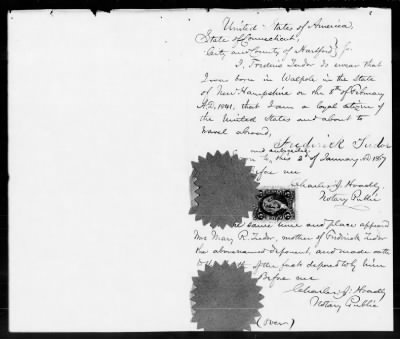 United States of America,
State of Connecticut,
City and County of Hartford } ss.
I, Frederic Tudor do swear that
I was born in Walpole in the State
of New Hampshire on the 8th of February
A.D. 1841, that I am a loyal citizen of
the United States and about to
travel abroad,
Frederick Tudor
and subscribed
this 2d of January AD 1867
before me
Charles J. Hoadly
Notary Public
same time and place appeared
Mrs Mary R. Tudor, mother of Fredrick Tudor
the above named deponent, and made oath
to the of the facts deposed to by him
Before me
Charles J. Hoadly
Notary Public
(over)